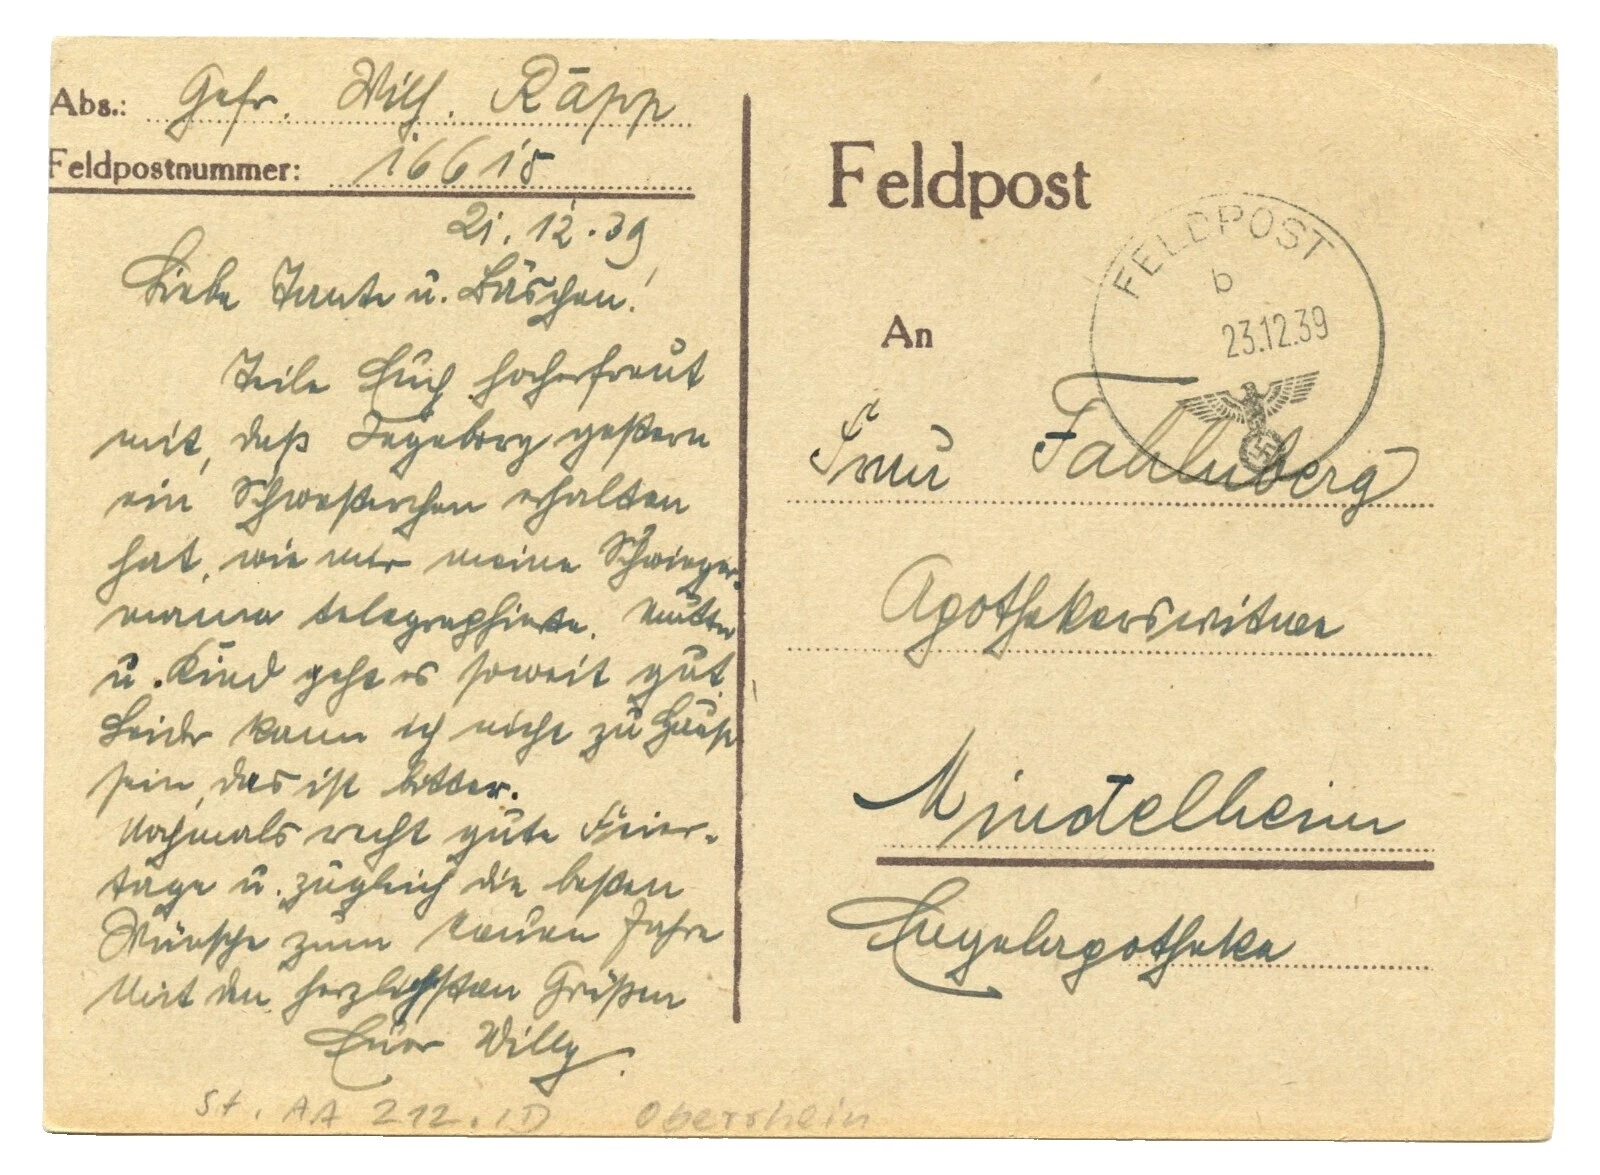 Abs.: Gefr. Wilh. Rapp
Feldpostnummer: 16618
21.12.39
Liebe Tante u. Bäschen!
Teile Euch hocherfreut
mit, daß Ingeborg gestern
ein Schwesterchen erhalten
hat, wie mir meine Schwieger-
mama telegraphierte. Mutter
u. Kind geht es soweit gut.
Leider kann ich nicht zu Hause
sein, das ist bitter.
Nochmals recht gute Feier-
tage u. zugleich die besten
Wünsche zum neuen Jahre
Mit den herzlichsten Grüßen
Euer Willy.
St. AA 212. ID Oberrhein
Feldpost
FELDPOST
b
23.12.39
An
Frau Fahlnberg
Apothekerswitwe
Mindelheim
Engelapotheke